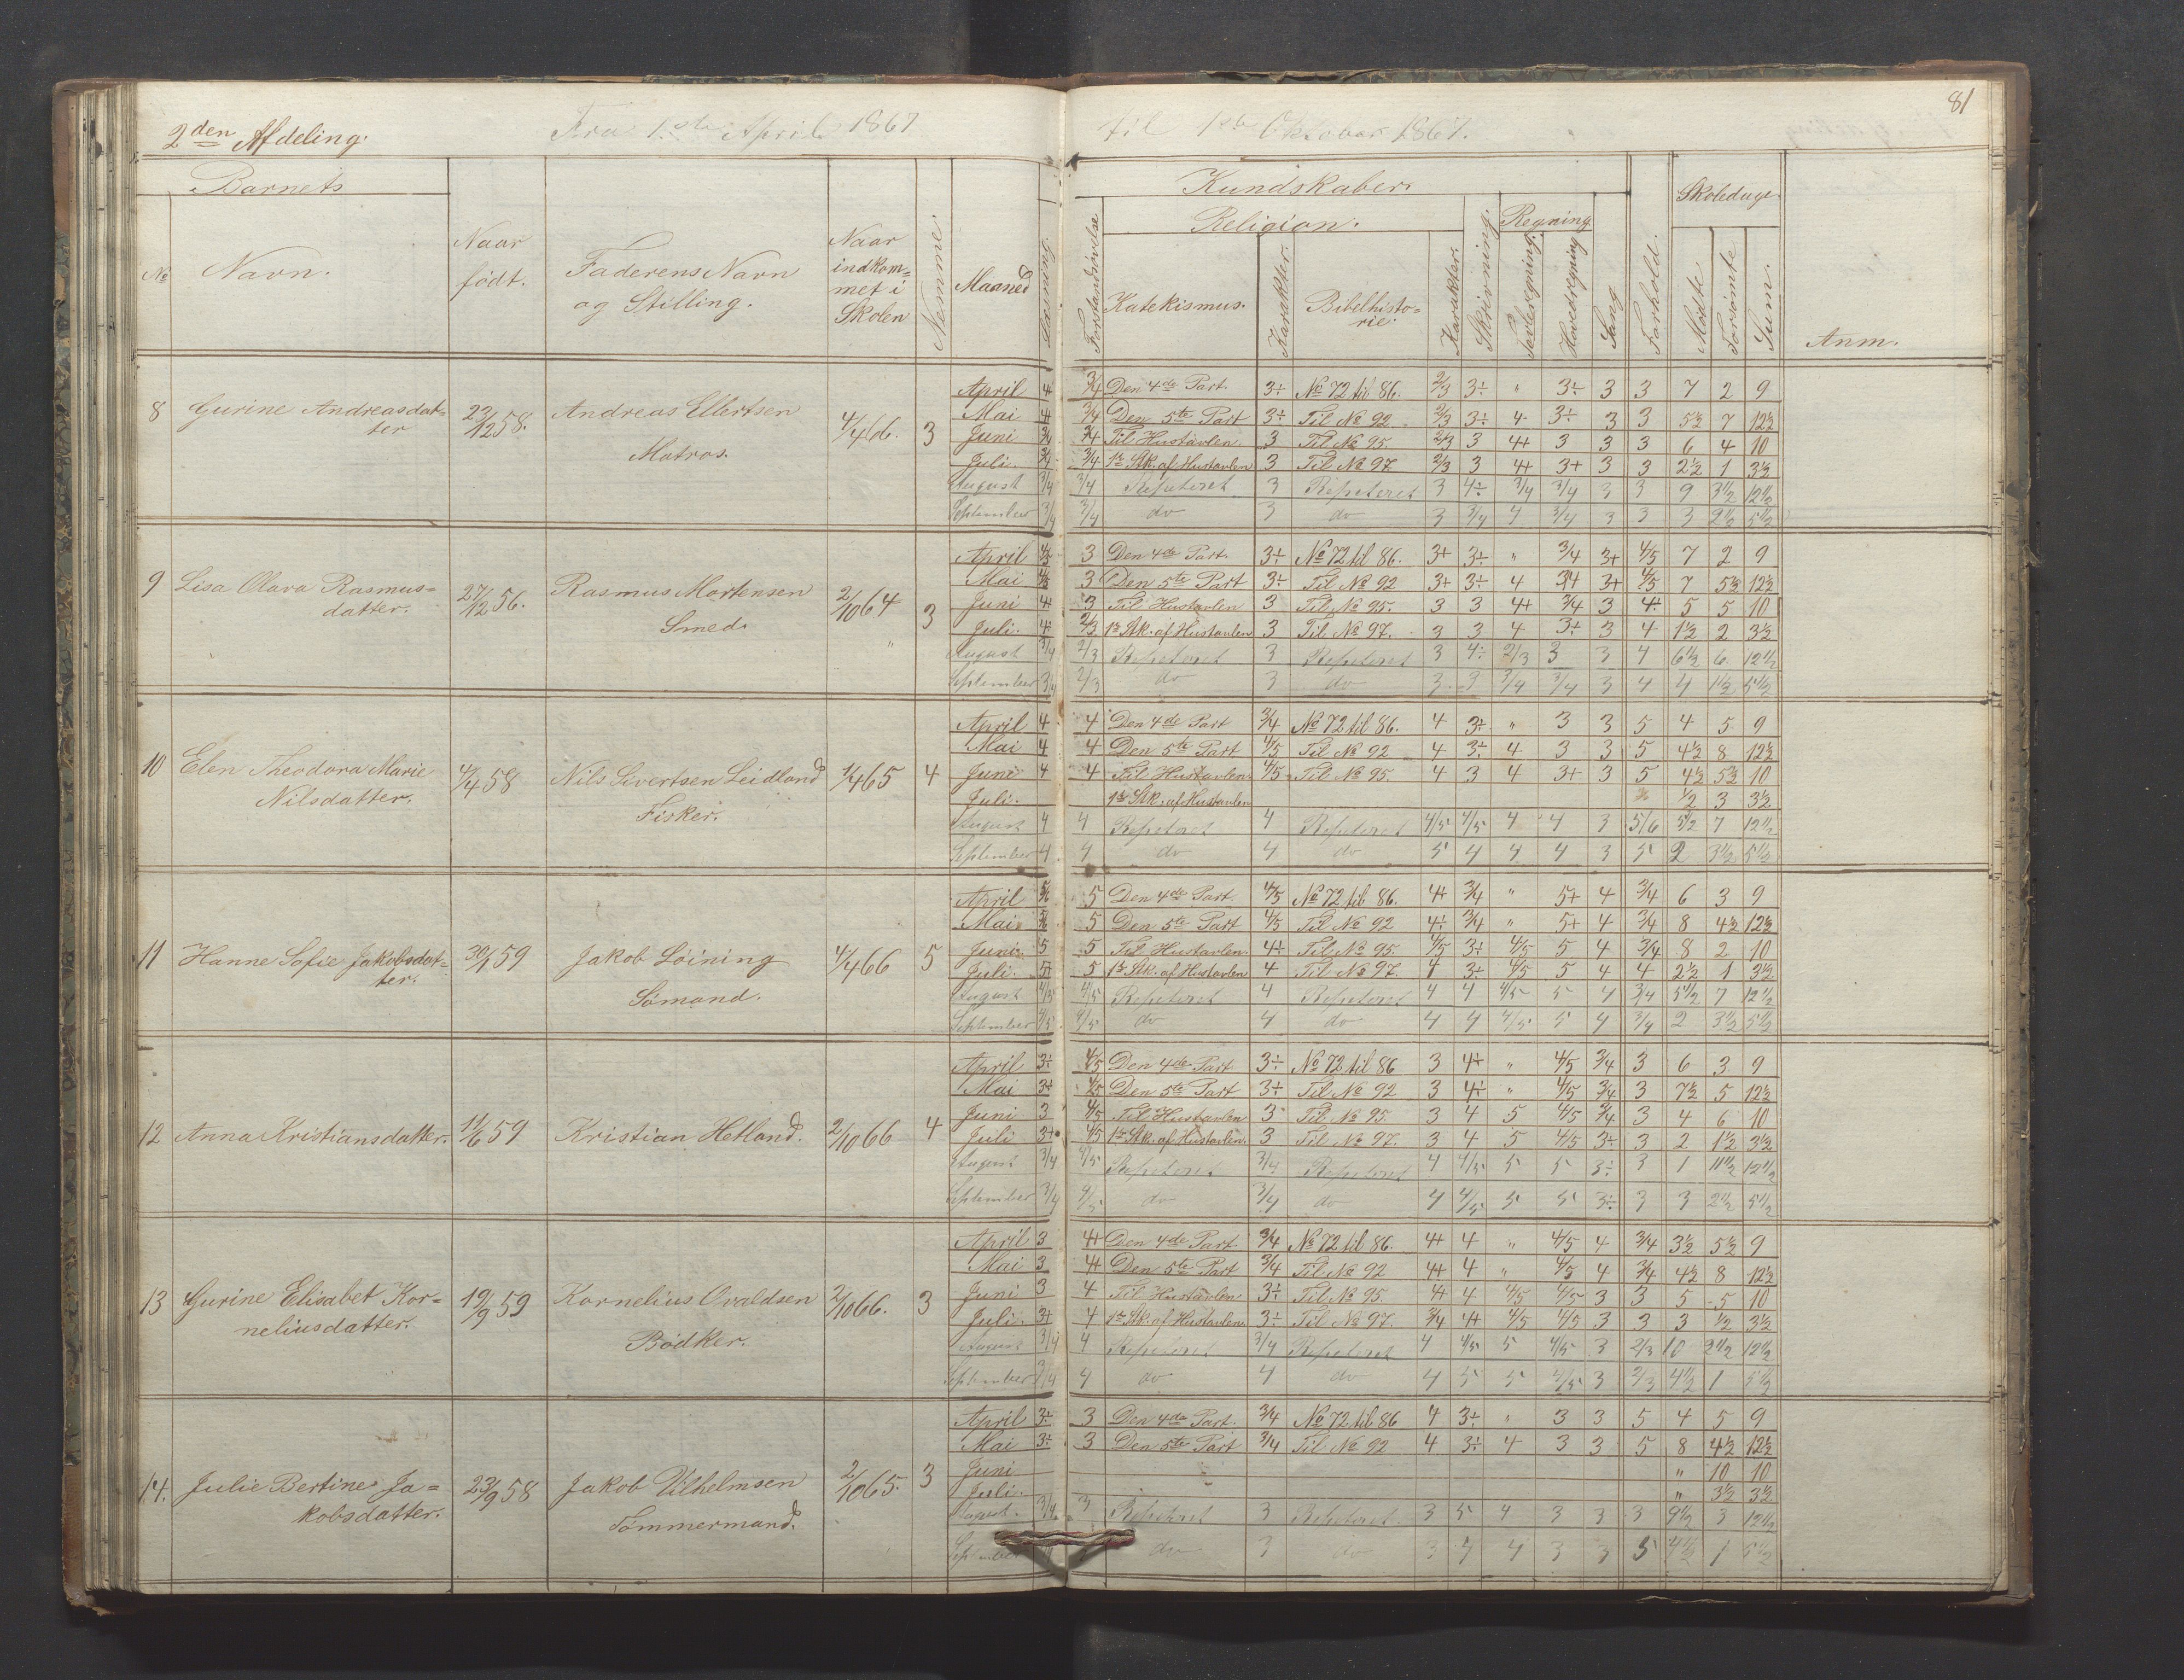 81
2den Afdeling.
Fra 1ste April 1867
til 1ste Oktober 1867.
Barnets
Kundskaber.
Skoledage
Religion.
Regning
№ Navn.
Naar født.
Faderens Navn og Stilling.
Naar indkom=met i Skolen
Nemme.
Maaned
Læsning.
Forstandsøvelse
Katekismus.
Karakter.
Bibelhisto=rie.
Karakter.
Skrivning.
Tavleregning.
Hovedregning
Sang
Forhold.
Mødte
Forsømte
Sum.
Anm.
8 Gurine Andreasdat=ter 23/12 58. Andreas Ellertsen Matros. 4/4 66. 3
April 4 3/4 Den 4de Part. 3÷ № 72 til 86. 2/3 3÷ " 3÷ 3 3 7 2 9
Mai 4 3/4 Den 5te Part 3÷ Til № 92 2/3 3÷ 4 3÷ 3 3 5½ 7 12½
Juni 3/4 3/4 Til Hustavlen 3 Til № 95 2/3 3 4+ 3 3 3 6 4 10
Juli. 3/4 3/4 1ste Stk. af Hustavlen 3 Til № 97 2/3 3 4+ 3+ 3 3 2½ 1 3½
August 3/4 3/4 Repeteret 3 Repeteret 3 4÷ 3/4 3/4 3 3 9 3½ 12½
September 3/4 3/4 do 3 do 3 3/4 4 3/4 3 3 3 2½ 5½
9 Lisa Olava Rasmus=datter. 27/12 56. Rasmus Mortensen Smed. 2/10 64 3
April 4/5 3 Den 4de Part 3÷ № 72 til 86. 3+ 3÷ " 3/4 3+ 4/5 7 2 9
Mai 4/5 3 Den 5te Part 3÷ Til № 92 3+ 3÷ 4 3/4 3+ 4/5 7 5½ 12½
Juni 4 3 Til Hustavlen 3 Til № 95. 3 3 4+ 3/4 3 4÷ 5 5 10
Juli. 4 2/3 1ste Stk. af Hustavlen 3 Til № 97. 3 3 4 3+ 3 4 1½ 2 3½
August 3/4 2/3 Repeteret 3 Repeteret 3 4÷ 2/3 3 3 4 6½ 6 12½
September 3/4 2/3 do 3 do 3 3 3/4 3/4 3 4 4 1½ 5½
10 Elen Theodora Marie Nilsdatter. 4/4 58 Nils Sivertsen Leidland Fisker. 1/4 65 4
April 4 4 Den 4de Part 3/4 № 72 til 86. 4 3÷ " 3 3 5 4 5 9
Mai 4 4 Den 5te Part 4/5 Til № 92 4 3÷ 4 3 3 5 4½ 8 12½
Juni 4 4 Til Hustavlen 4/5 Til № 95. 4 3 4 3+ 3 5 4½ 5½ 10
Juli. 1ste Stk. af Hustavlen ½ 3 3½
August 4 4 Repeteret 4 Repeteret 4/5 4/5 4 4 3 5/6 5½ 7 12½
September 4 4 do 4 do 5 4 4 4 3 5 2 3½ 5½
11 Hanne Sofie Jakobsdat=ter. 30/1 59 Jakob Løining Sømand. 4/4 66 5
April 5/6 5 Den 4de Part. 4/5 № 72 til 86. 4+ 3/4 " 5+ 4 3/4 6 3 9
Mai 5/6 5 Den 5te Part 4/5 Til № 92 4÷ 3/4 " 5+ 4 3/4 8 4½ 12½
Juni 5 5 Til Hustavlen. 4÷ Til № 95. 4/5 3÷ 4/5 5 4 3/4 8 2 10
Juli. 5+ 5 1ste Stk. af Hustavlen 4 Til № 97. 4 3÷ 4/5 5 4 4 2½ 1 3½
August 4/5 4/5 Repeteret 4 Repeteret 4 4 4/5 5 4 3/4 5½ 7 12½
September 4/5 4/5 do 4 do 4 4 4/5 5 4 3/4 2 3½ 5½
12 Anna Kristiansdatter. 11/6 59 Kristian Hetland. 2/10 66 4
April 3÷ 4/5 Den 4de Part 3÷ № 72 til 86 3 4+ " 4/5 3/4 3 6 3 9
Mai 3+ 4/5 Den 5te Part 3÷ Til № 92 3 4÷ " 4/5 3/4 3 7½ 5 12½
Juni 3 4/5 Til Hustavlen 3 Til № 95. 3 4 5 4/5 3/4 3 4 6 10
Juli 3+ 4/5 1ste Stk. af Hustavlen. 3 Til № 97. 3 4 5 4/5 3÷ 3 2 1½ 3½
August 3/4 4/5 Repeteret 3/4 Repeteret 4 4/5 5 5 3÷ 3 1 11½ 12½
September 3/4 4/5 do 3/4 do 4 4/5 5 5 3÷ 3 3 2½ 5½
13 Gurine Elisabet Kor=neliusdatter. 19/9 59 Kornelius Ovaldsen Bødker. 2/10 66. 3
April 3 4+ Den 4de Part. 3/4 № 72 til 86. 4+ 4 " 4/5 4 3/4 3½ 5½ 9
Mai 3 4+ Den 5te Part 3/4 Til № 92 4+ 4 " 4/5 4 3/4 4½ 8 12½
Juni 3 4 Til Hustavlen 3÷ Til № 95. 4+ 4 4/5 4/5 3 3 5 5 10
Juli. 3+ 4 1ste Stk. af Hustavlen. 3÷ Til № 97. 3/4 4+ 4/5 4/5 3 3 3 ½ 3½
August 3/4 4 Repeteret 3/4 Repeteret 4 4/5 5 4/5 3 2/3 10 2½ 12½
September 3/4 4 do 4 do 4 5 5 4/5 3 2/3 4½ 1 5½
14. Julie Bertine Ja=kobsdatter. 23/9 58 Jakob Vilhelmsen Tømmermand. 2/10 65. 3
April 3÷ 3 Den 4de Part. 3/4 № 72 til 86 4 3÷ " 3 3 5 4 5 9
Mai 3÷ 3 Den 5te Part 3/4 Til № 92 4 3÷ 4 3 3 5 8 4½ 12½
Juni " 10 10
Juli. " 3½ 3½
August. 3/4 3 Repeteret 3 Repeteret 3 5 4 3 3 3 9½ 3 12½
September do 3 do 3 4 4 3 3 5 4½ 1 5½